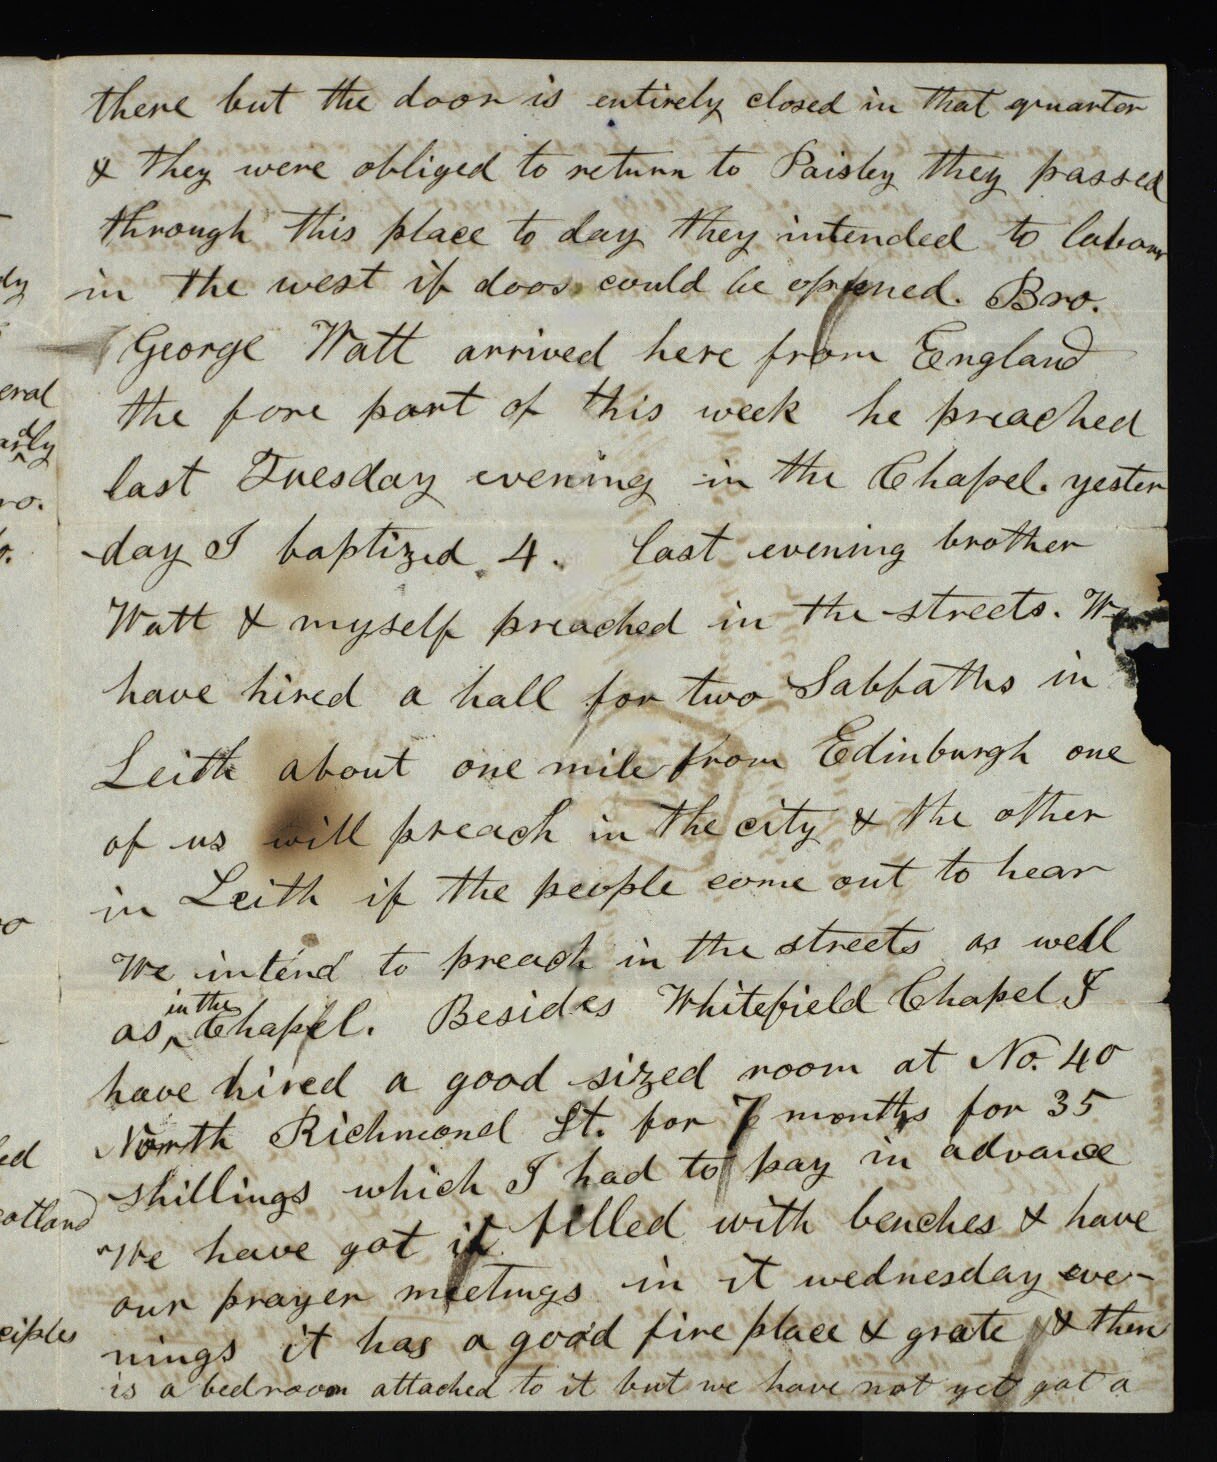 there but the door is entirely closed in that quarter
& they were obliged to return to Paisley they passed
through this place to day they intended to labour
in the west if doos could be opened. Bro.
George Watt arrived here from England
the fore part of this week he preached
last Tuesday evening in the Chapel. yester
day I baptized 4. last evening brother
Watt & myself preached in the streets. We
have hired a hall for two Sabbaths in
Leith about one mile from Edinburgh one
of us will preach in the city & the other
in Leith if the people come out to hear
We intend to preach in the streets as well
in the
as ^ Chapel. Besides Whitefield Chapel I
have hired a good sized room at No. 40
North Richmond St. for months for 35
shillings which I had to pay in advance
We have got it filled with benches & have
our prayer meetings in it wednesday eve-
nings it has a good fire place & grate & then
is a bedroom attached to it but we have not yet got a
dly
eral
ardly
ro.
o.
ro
ed
cotland
ciples